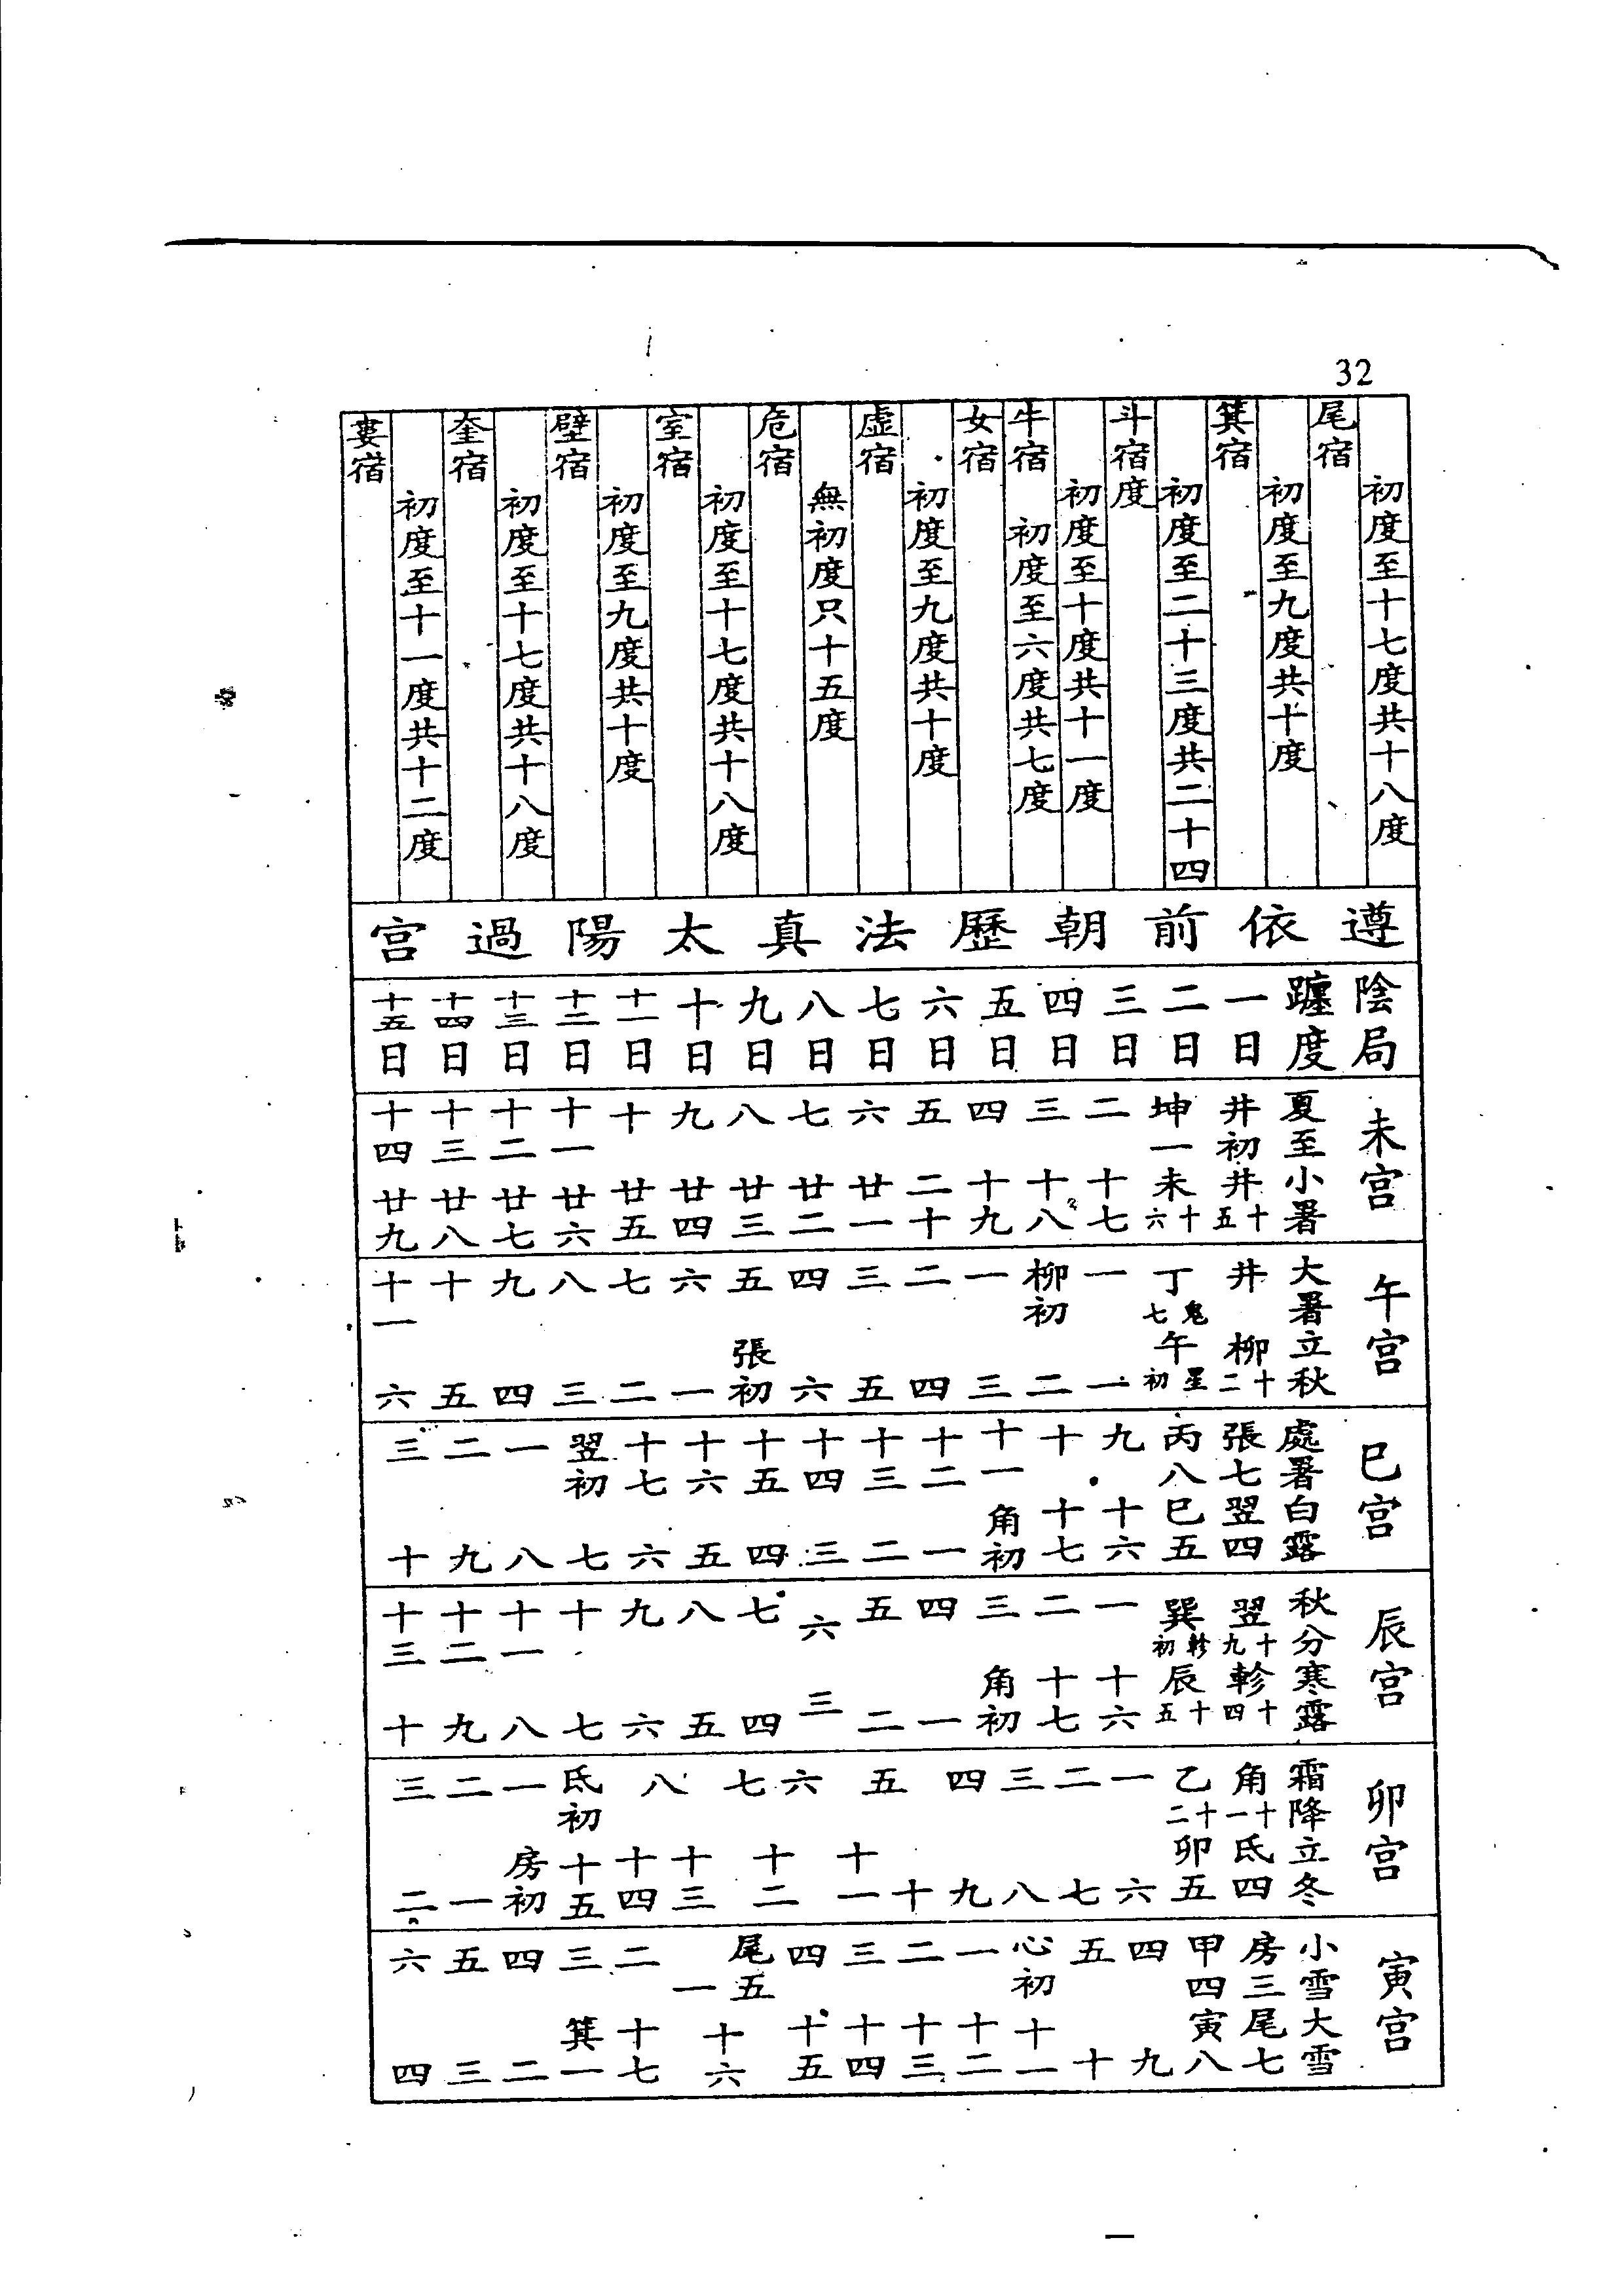 32
初度至十七度共十八度
尾宿
初度至九度共十度
箕宿
初度至二十三度共二十四
斗宿度
初度至十度共十一度
牛宿 初度至六度共七度
女宿
初度至九度共十度
虛宿
無初度只十五度
危宿
初度至十七度共十八度
室宿
初度至九度共十度
壁宿
初度至十七度共十八度
奎宿
初度至十一度共十二度
婁宿
遵依前朝歷法真太陽過宮
陰局 躔度 一日 二日 三日 四日 五日 六日 七日 八日 九日 十日 十一日 十二日 十三日 十四日 十五日
未宮
夏至 井初 坤一 二 三 四 五 六 七 八 九 十 十一 十二 十三 十四
小暑 井十五 未十六 十七 十八 十九 二十 廿一 廿二 廿三 廿四 廿五 廿六 廿七 廿八 廿九
午宮
大暑 井 丁鬼七 一 柳初 一 二 三 四 五 六 七 八 九 十 十一
立秋 柳十二 午星初 一 二 三 四 五 六 張初 一 二 三 四 五 六
巳宮
處暑 張七 丙八 九 十 十一 十二 十三 十四 十五 十六 十七 翌初 一 二 三
白露 翌四 巳五 十六 十七 角初 一 二 三 四 五 六 七 八 九 十
辰宮
秋分 翌十九 巽軫初 一 二 三 四 五 六 七 八 九 十 十一 十二 十三
寒露 軫十四 辰十五 十六 十七 角初 一 二 三 四 五 六 七 八 九 十
卯宮
霜降 角十一 乙十二 一 二 三 四 五 六 七 八 氐初 一 二 三
立冬 氐四 卯五 六 七 八 九 十 十一 十二 十三 十四 十五 房初 一 二
寅宮
小雪 房三 甲四 四 五 心初 一 二 三 四 尾五 一 二 三 四 五 六
大雪 尾七 寅八 九 十 十一 十二 十三 十四 十五 十六 十七 箕一 二 三 四